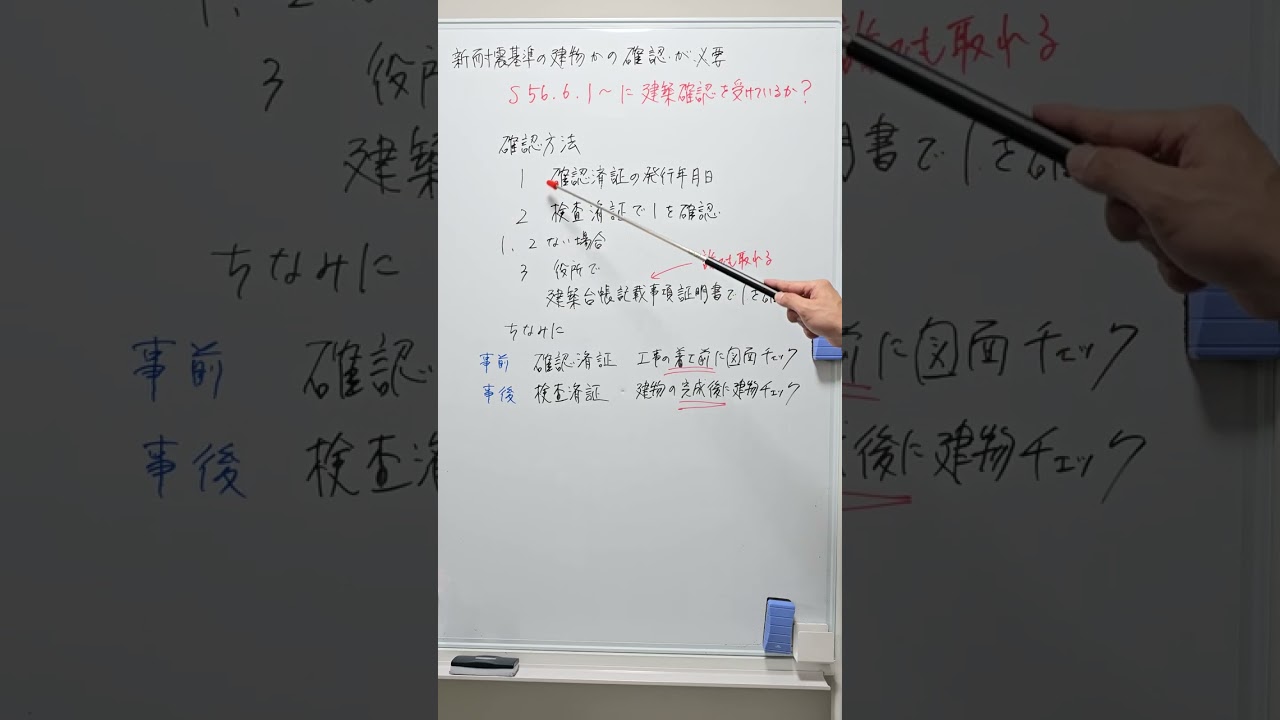 新耐震基準の建物かの確認が必要
S56.6.1〜に建築確認を受けているか？
確認方法
1 確認済証の発行年月日
2 検査済証で1を確認
1、2ない場合
3 役所で
誰でも取れる
建築台帳記載事項証明書で1を確
ちなみに
事前 確認済証 工事の着工前に図面チェック
事後 検査済証 建物の完成後に建物チェック